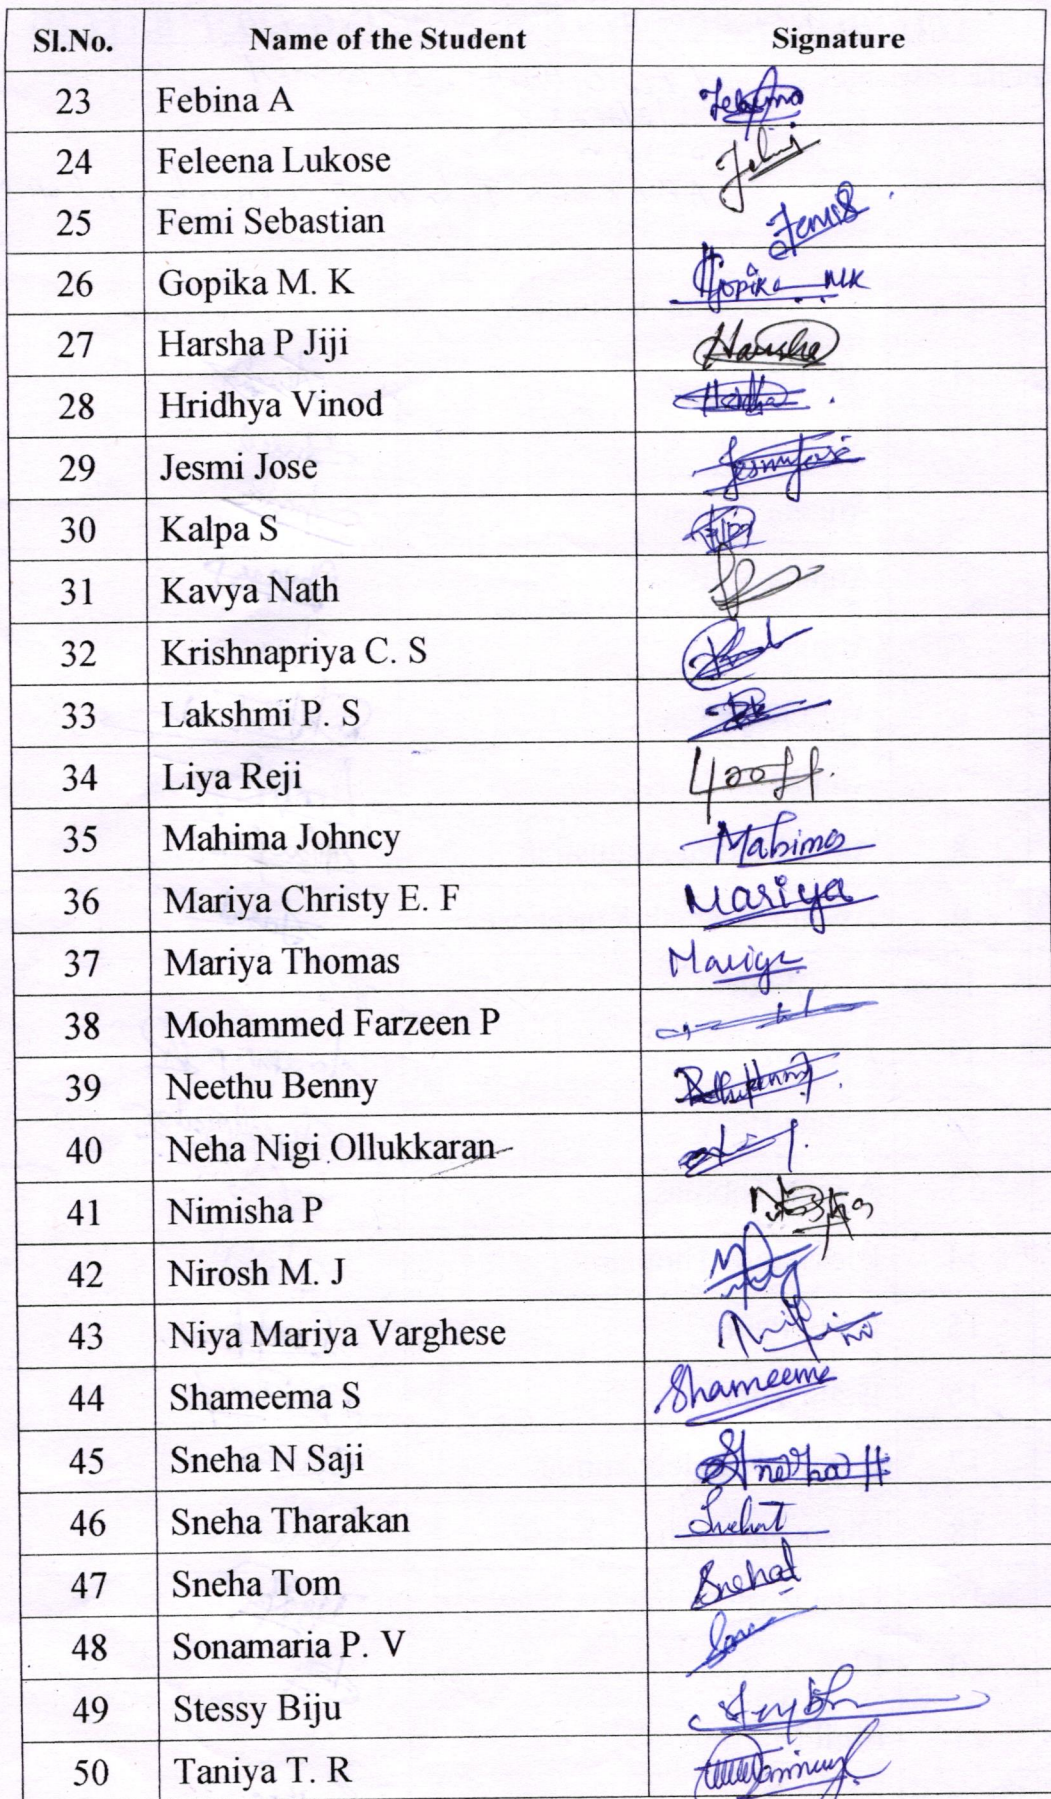 Sl.No. Name of the Student Signature
23 Febina A Febina
24 Feleena Lukose
25 Femi Sebastian Femi S
26 Gopika M. K Gopika MK
27 Harsha P Jiji Harsha
28 Hridhya Vinod
29 Jesmi Jose Jesmy Jose
30 Kalpa S
31 Kavya Nath
32 Krishnapriya C. S
33 Lakshmi P. S
34 Liya Reji
35 Mahima Johncy Mahima
36 Mariya Christy E. F Mariya
37 Mariya Thomas Mariya
38 Mohammed Farzeen P
39 Neethu Benny
40 Neha Nigi Ollukkaran
41 Nimisha P
42 Nirosh M. J
43 Niya Mariya Varghese
44 Shameema S Shameema
45 Sneha N Saji Sneha
46 Sneha Tharakan
47 Sneha Tom Sneha
48 Sonamaria P. V
49 Stessy Biju
50 Taniya T. R